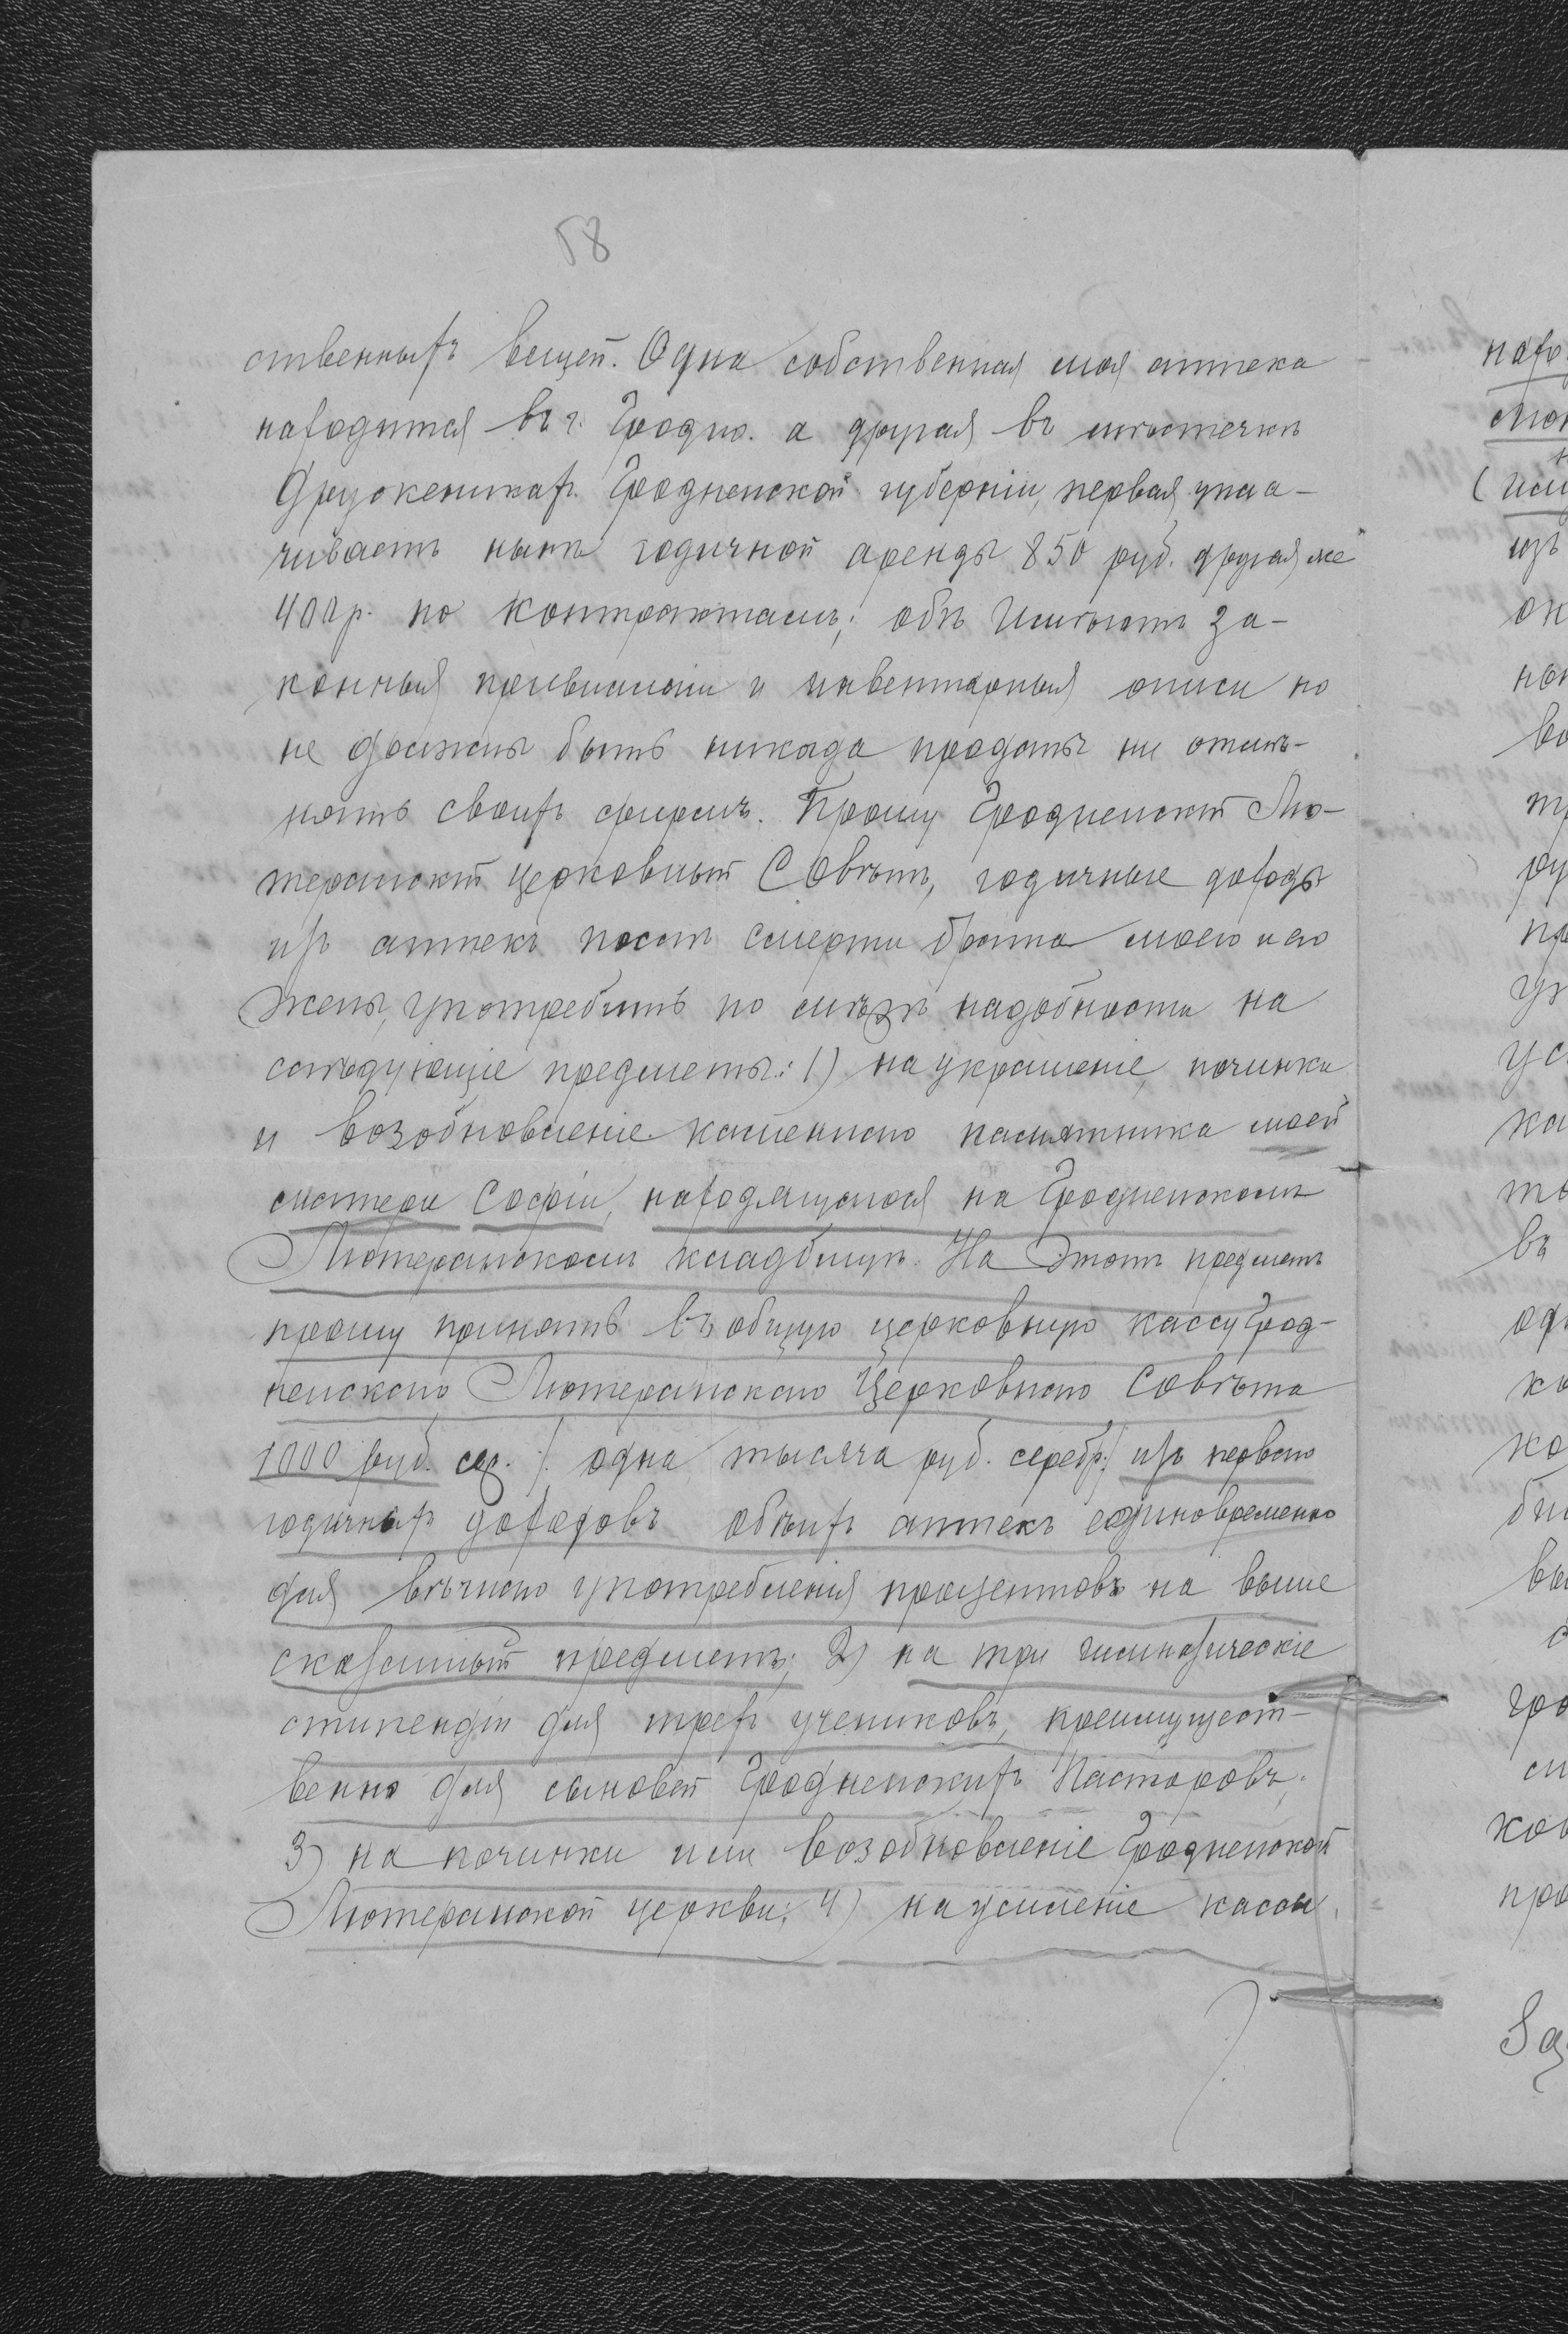 58
ственныхъ вещей. Одна собственная моя аптека
находится въ г. Гродно. а другая въ мѣстечкѣ
Друскеникахъ Гродненской губерніи, первая упла-
чиваетъ нынѣ годичной аренды 850 руб. другая же
400 р. по контрактамъ; обѣ имѣютъ за-
конныя привилегіи и инвентарныя описи но
не должны быть никогда проданы ни отмѣ-
нять своихъ фирмъ. Прошу Гродненскій Лю-
теранскій Церковный Совѣтъ, годичные доходы
изъ аптекъ послѣ смерти брата моего и его
жены, употребить по мѣрѣ надобности на
слѣдующіе предметы: 1) на украшеніе, починки
и возобновленіе каменнаго памятника моей
систери Софіи, находящагося на Гродненскомъ
Лютеранскомъ кладбищѣ. На этотъ предметъ
прошу принять въ общую церковную кассу Грод-
ненскаго Лютеранскаго Церковнаго Совѣта
1000 руб. сер. /: одна тысяча руб. серебр:/ изъ перваго
годичныхъ доходовъ обѣихъ аптекъ единовременно
для вѣчнаго употребленія процентовъ на выше
сказанный предметъ; 2) на три гимназическіе
стипендіи для трехъ учениковъ, преимущест-
венно для сыновей Гродненскихъ Пасторовъ;
3) на починки или возобновленіе Гродненской
Лютеранской церкви; 4) на усиленіе кассы